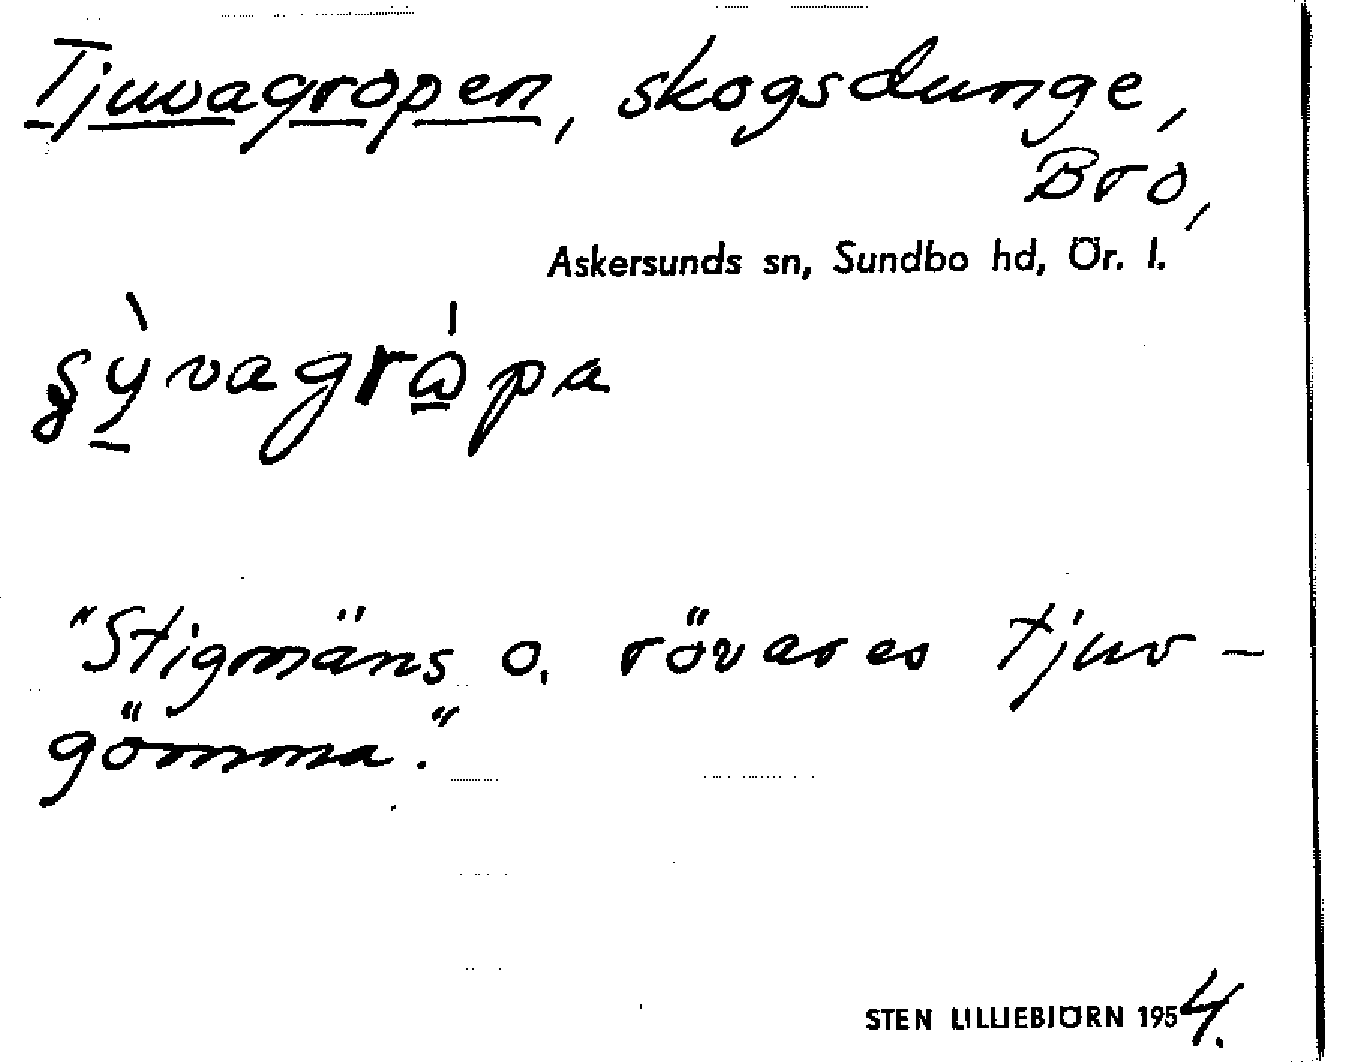 Tjuvagropen, skogsdunge,
Bro,
Askersunds sn, Sundbo hd, Ör. l.
"Stigmäns o. rövares tjuv-
gömma."
STEN LILLIEBJÖRN 1954.